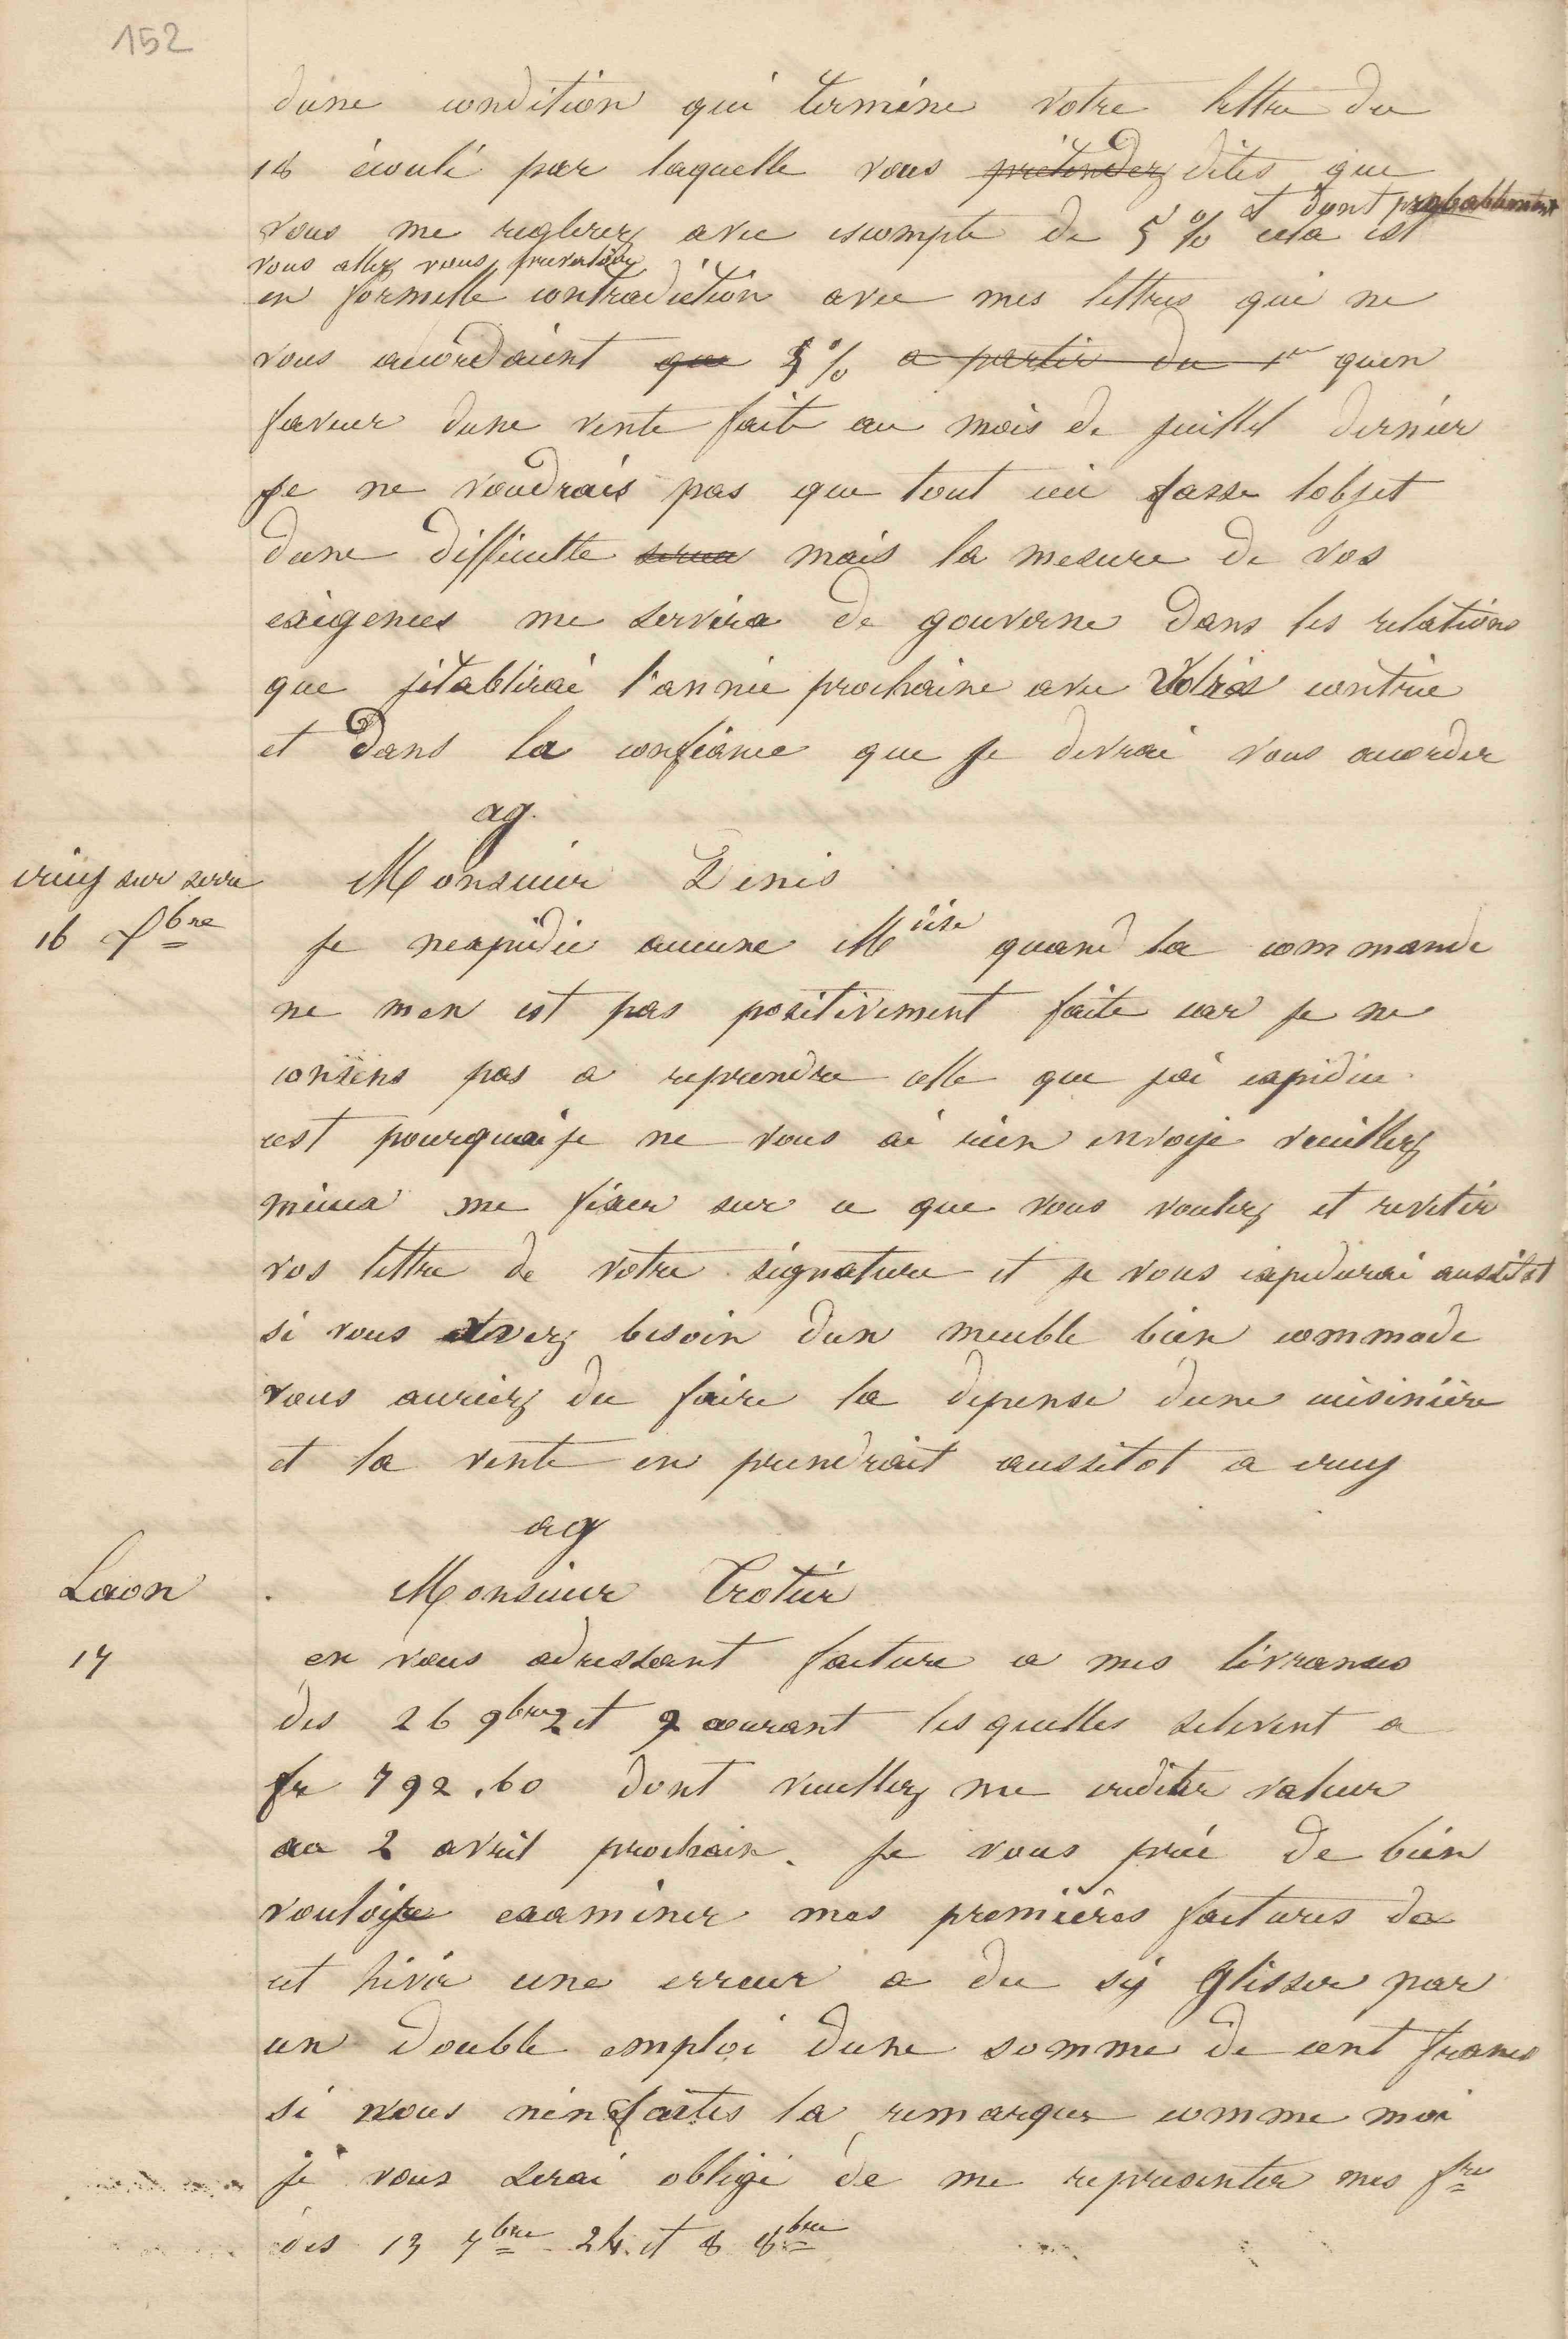 152
dune condition qui termine votre lettre du
18 écoulé par laquelle vous prétendez dites que
et dont probablement
vous me reglerez avec escompte de 5 % cela est
vous allez vous prevaloir
en formelle contradiction avec mes lettres qui ne
vous accordaient que 5 % a partir du 1er quen
faveur dune vente faite au mois de juillet dernier
je ne voudrais pas que tout ceci fasse lobjet
dune difficulte mais la mesure de vos
exigences me servira de gouverne dans les relations
que jétablirai l'année prochaine avec contrée
et dans la confiance que je devrai vous accorder
ag.
crecy sur serre
Monsieur Denis
16 Xbre
je nexpédie aucune Mdise quand la commande
ne men est pas positivement faite car je ne
consens pas a reprendre celle que jai expédiée
cest pourquoi je ne vous ai rien envoyé veuillez
mieux me fixer sur ce que vous voulez et revetir
vos lettre de votre signature et je vous expedierai aussitot
si vous avez besoin dun meuble bien commode
vous auriez du faire la depense dune cuisinière
et la vente en prendrait aussitot a crecy
ag
Laon
Monsieur Trotin
17
en vous adressant facture a mes livrances
des 26 9bre 2 et 9 courant lesquelles selevent a
fr 792.60 dont veuillez me crediter valeur
au 2 avril prochain. Je vous prie de bien
vouloir examiner mes premières factures de
cet hiver une erreur a du sy glisser par
un double emploi dune somme de cent francs
si vous nen faites la remarque comme moi
je vous serai obligé de me representer mes fres
des 13 7bre 24 et 8 8bre